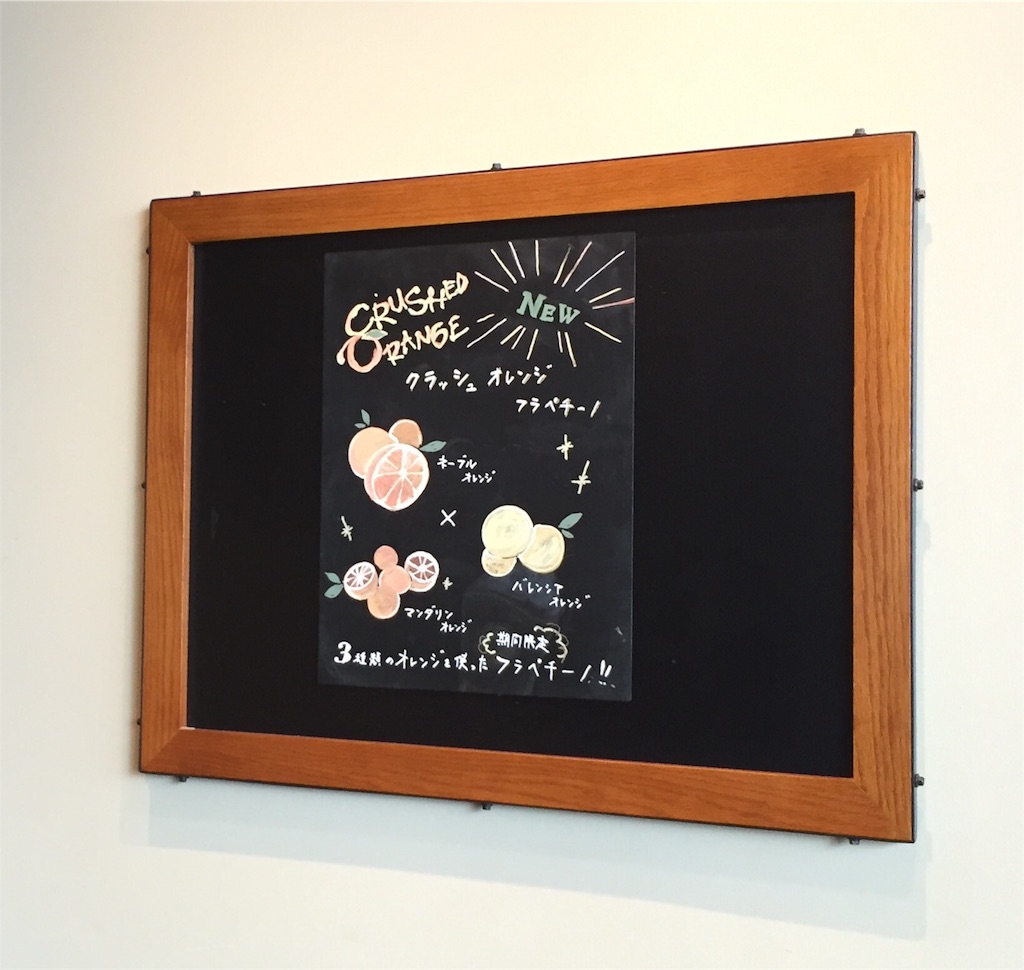 CRUSHED
ORANGE
NEW
クラッシュ オレンジ
フラペチーノ
ネーブル
オレンジ
×
バレンシア
オレンジ
マンダリン
オレンジ
期間限定
3種類のオレンジを使ったフラペチーノ!!